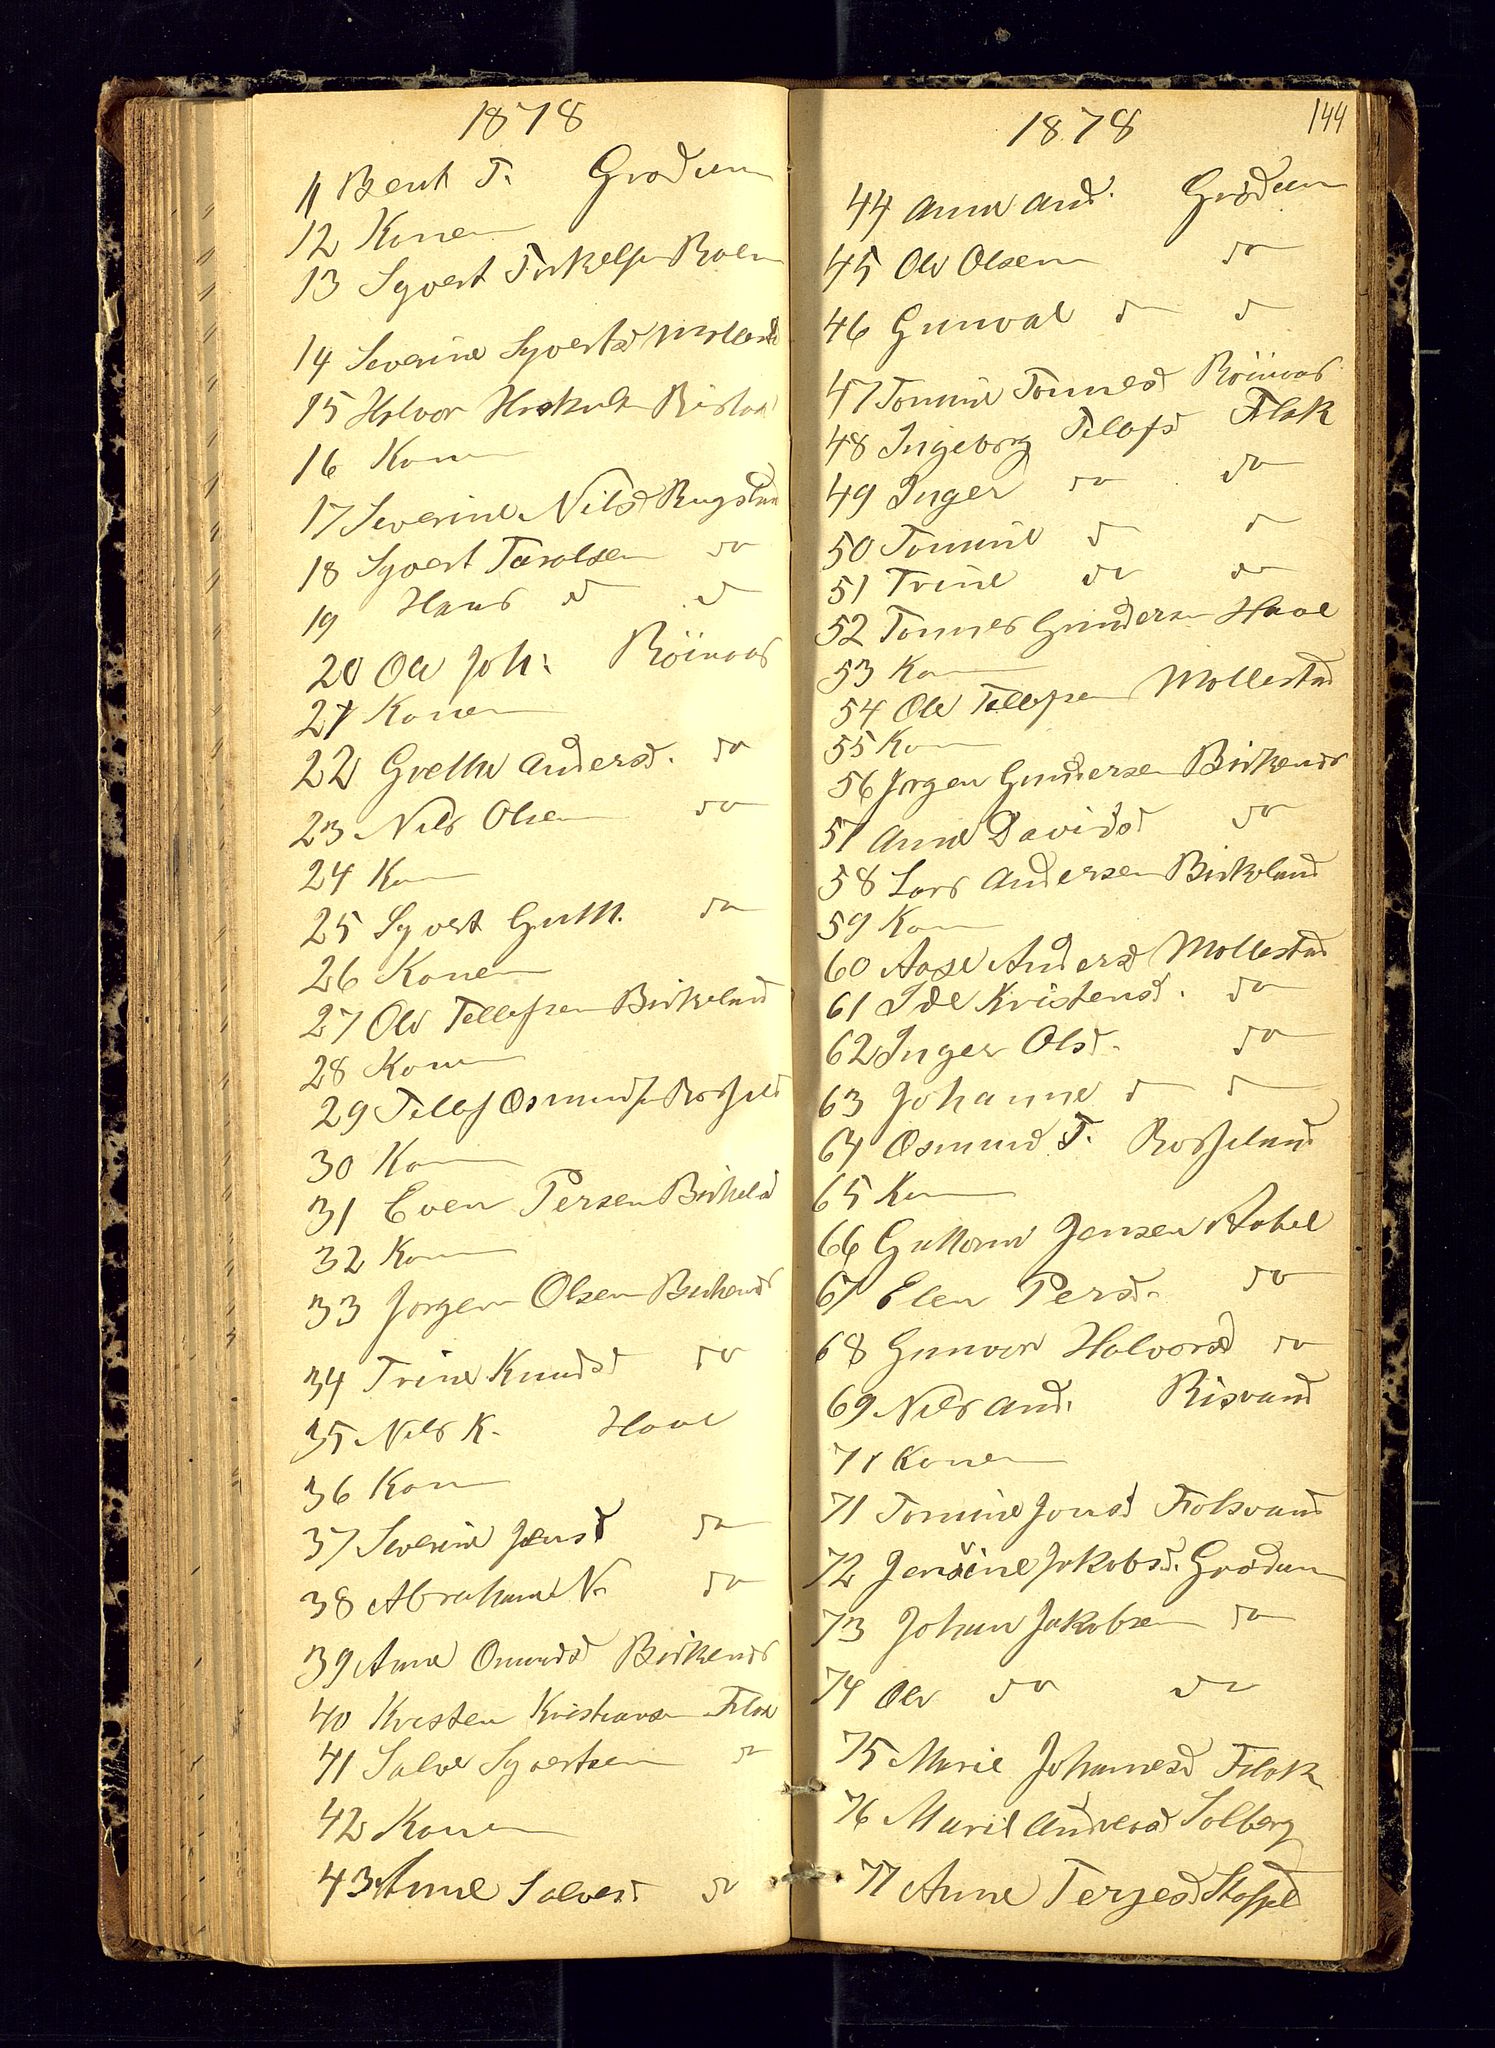 1878
11 Bent T. Grödum
12 Konen
13 Syvert Torkelsen Roln
14 Severine Syvertsd Molland
15 Halvor Birkeland
16 Konen
17 Severine Nilsd Rugsland
18 Syvert Tarolsen do
19 Hans d d
20 Ole Joh: Röinaas
21 Konen
22 Grethe Andersd. do
23 Nils Olsen do
24 Kon
25 Syvert Gutt. do
26 Konen
27 Ole Tellefsen Birkeland
28 Konen
29 Tellef Osmundsen Rosseland
30 Kon
31 Even Persen Birkeld
32 Kon
33 Jörgen Olsen Birkenes
34 Trine Knudsd do
35 Nils K. Haae
36 Kon
37 Severine Jensd do
38 Abraham N. do
39 Anne Omunds Birkenes
40 Kristen Kristiansen Flak
41 Salve Syvertsen do
42 Konen
43 Anne Salvesd do
144
1878
44 Anne And. Grödum
45 Ole Olsen do
46 Gunval d d
47 Tomine Tönnesd Röinaas
48 Ingeborg Tellefsd Flak
49 Inger do do
50 Tomine d d
51 Trine do do
52 Tönnes Gundersen Haae
53 Kon
54 Ole Tellefsen Mollestad
55 Kon
56 Jörgen Gundersen Birkenes
57 Anne Davidsd do
58 Lars Andersen Birkeland
59 Kon
60 Aase Andersd Mollestad
61 Ide Kristensd. do
62 Inger Olsd. do
63 Johanne d d
64 Osmund T. Rosseland
65 Kon
66 Guttorm Jensen Aabel
67 Elen Persd. do
68 Gunvor Halvorsd do
69 Nils And. Risvand
71 Konen
71 Tomine Jonsd Flosvand
72 Jensine Jakobsd. Grödum
73 Johan Jakobsen do
74 Ole do do
75 Marie Johannesd Flak
76 Marie Andersd Solberg
77 Anne Terjesd